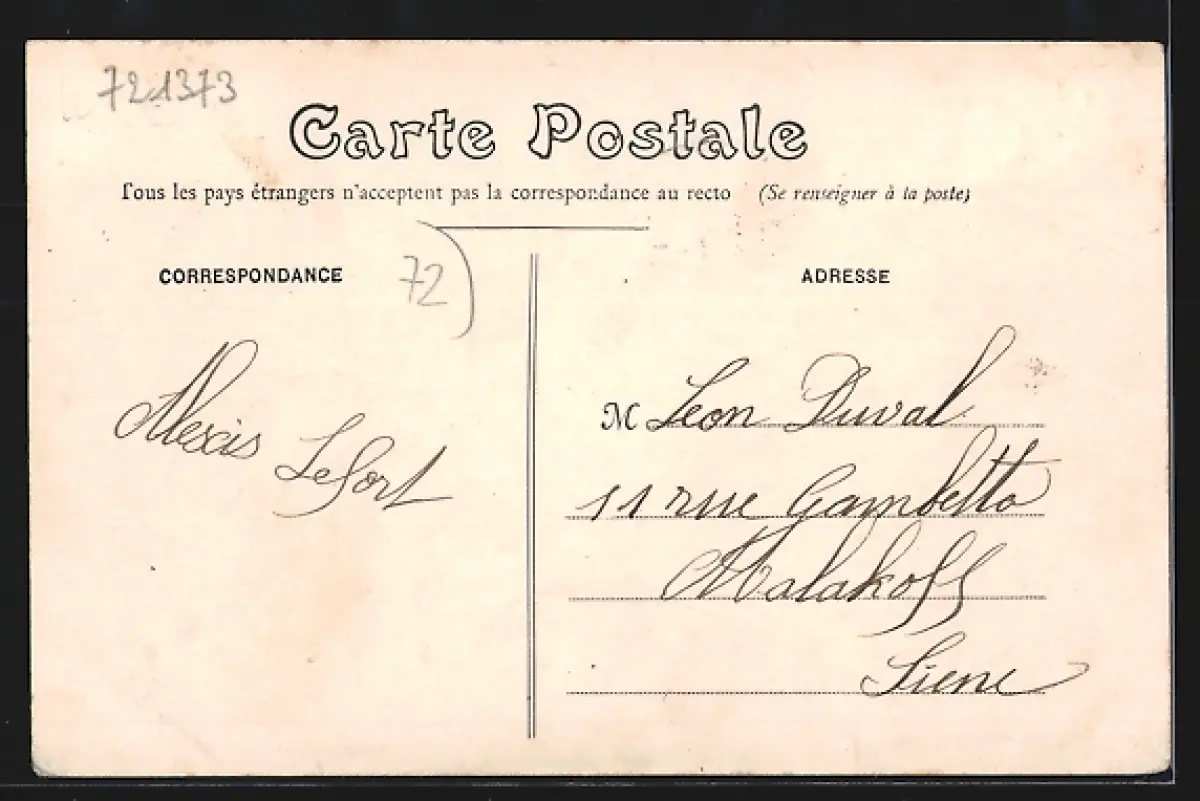 721373
Carte Postale
Tous les pays étrangers n'acceptent pas la correspondance au recto (Se renseigner à la poste)
CORRESPONDANCE
72
Alexis Lefort
ADRESSE
M Leon Duval
11 rue Gambetta
Malakoff
Siene